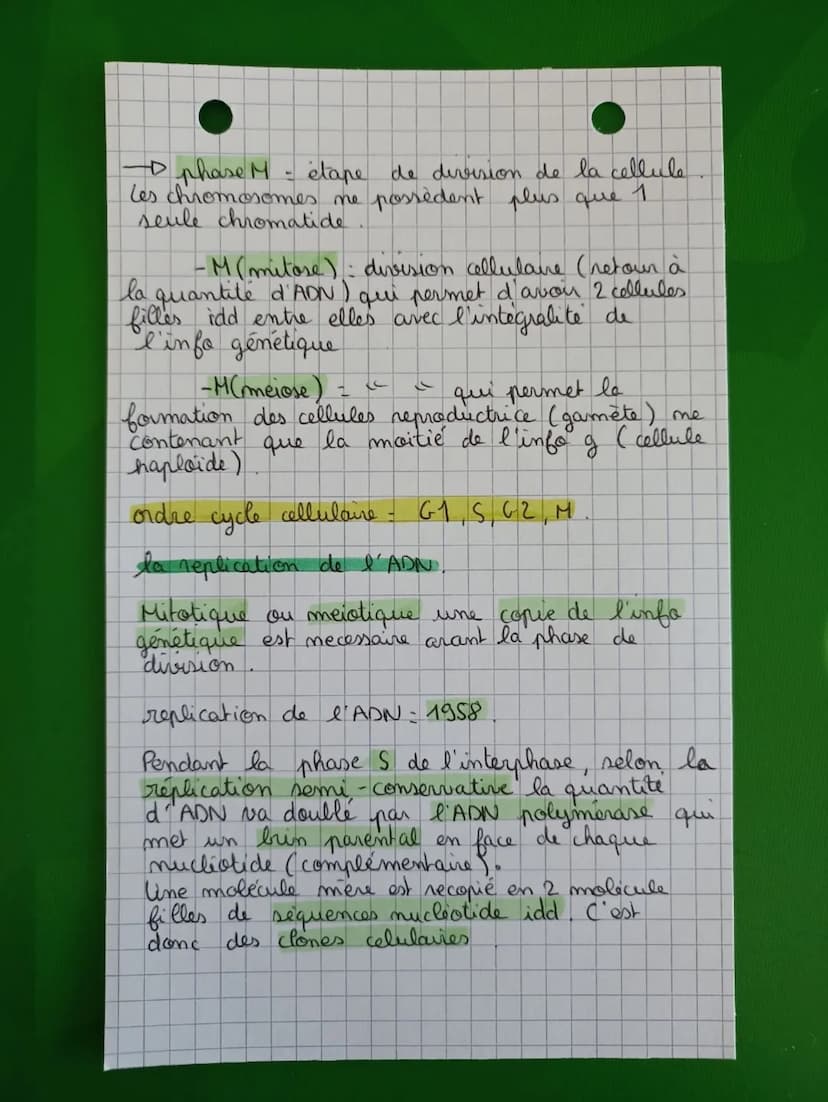 → phase M = étape de division de la cellule.
Les chromosomes ne possèdent plus que 1
seule chromatide.
- M (mitose) : division cellulaire (retour à
la quantité d'ADN) qui permet d'avoir 2 cellules
filles idd entre elles avec l'intégralité de
l'info génétique
- M (méiose) = " " qui permet la
formation des cellules reproductrice (gamète) ne
contenant que la moitié de l'info g (cellule
haploïde).
ordre cycle cellulaire = G1, S, G2, M.
la replication de l'ADN.
Mitotique ou meiotique une copie de l'info
génétique est necessaire avant la phase de
division.
replication de l'ADN : 1958.
Pendant la phase S de l'interphase, selon la
réplication semi-conservative la quantité
d'ADN va doublé par l'ADN polymérase qui
met un brin parental en face de chaque
nucliotide (complémentaire).
Une molécule mère est recopié en 2 molécule
filles de séquences nucléotide idd. C'est
donc des clones celularies